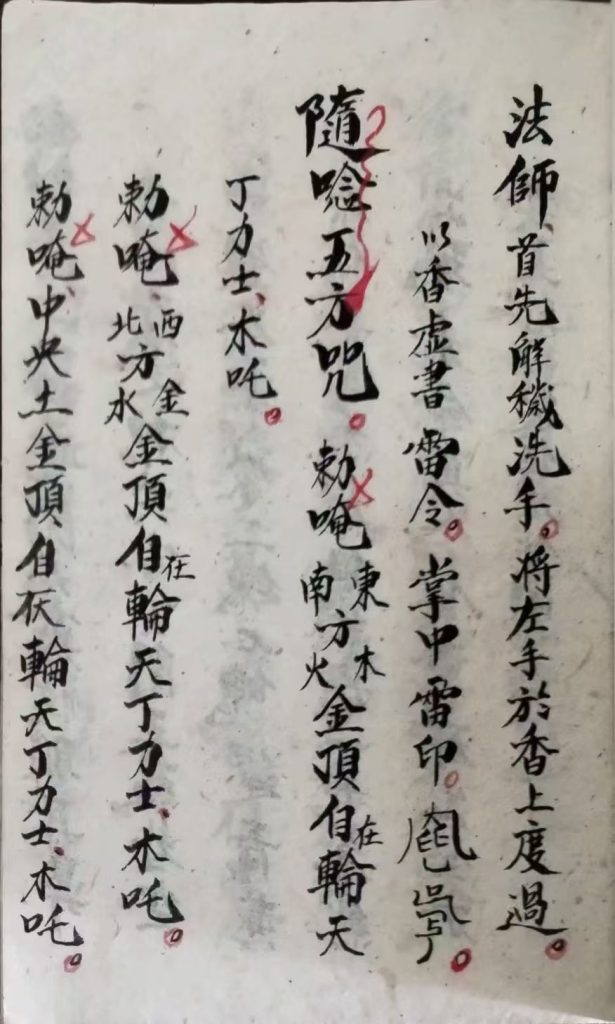 法師首先解穢洗手。將左手於香上度過。
以香虛書雷令。掌中雷印。
隨唸五方咒。勅唵東南方木火金頂自在輪天
丁力士、木吒。
勅唵、西北方金水金頂自在輪天丁力士、木吒。
勅唵中央土金頂自在輪天丁力士、木吒。